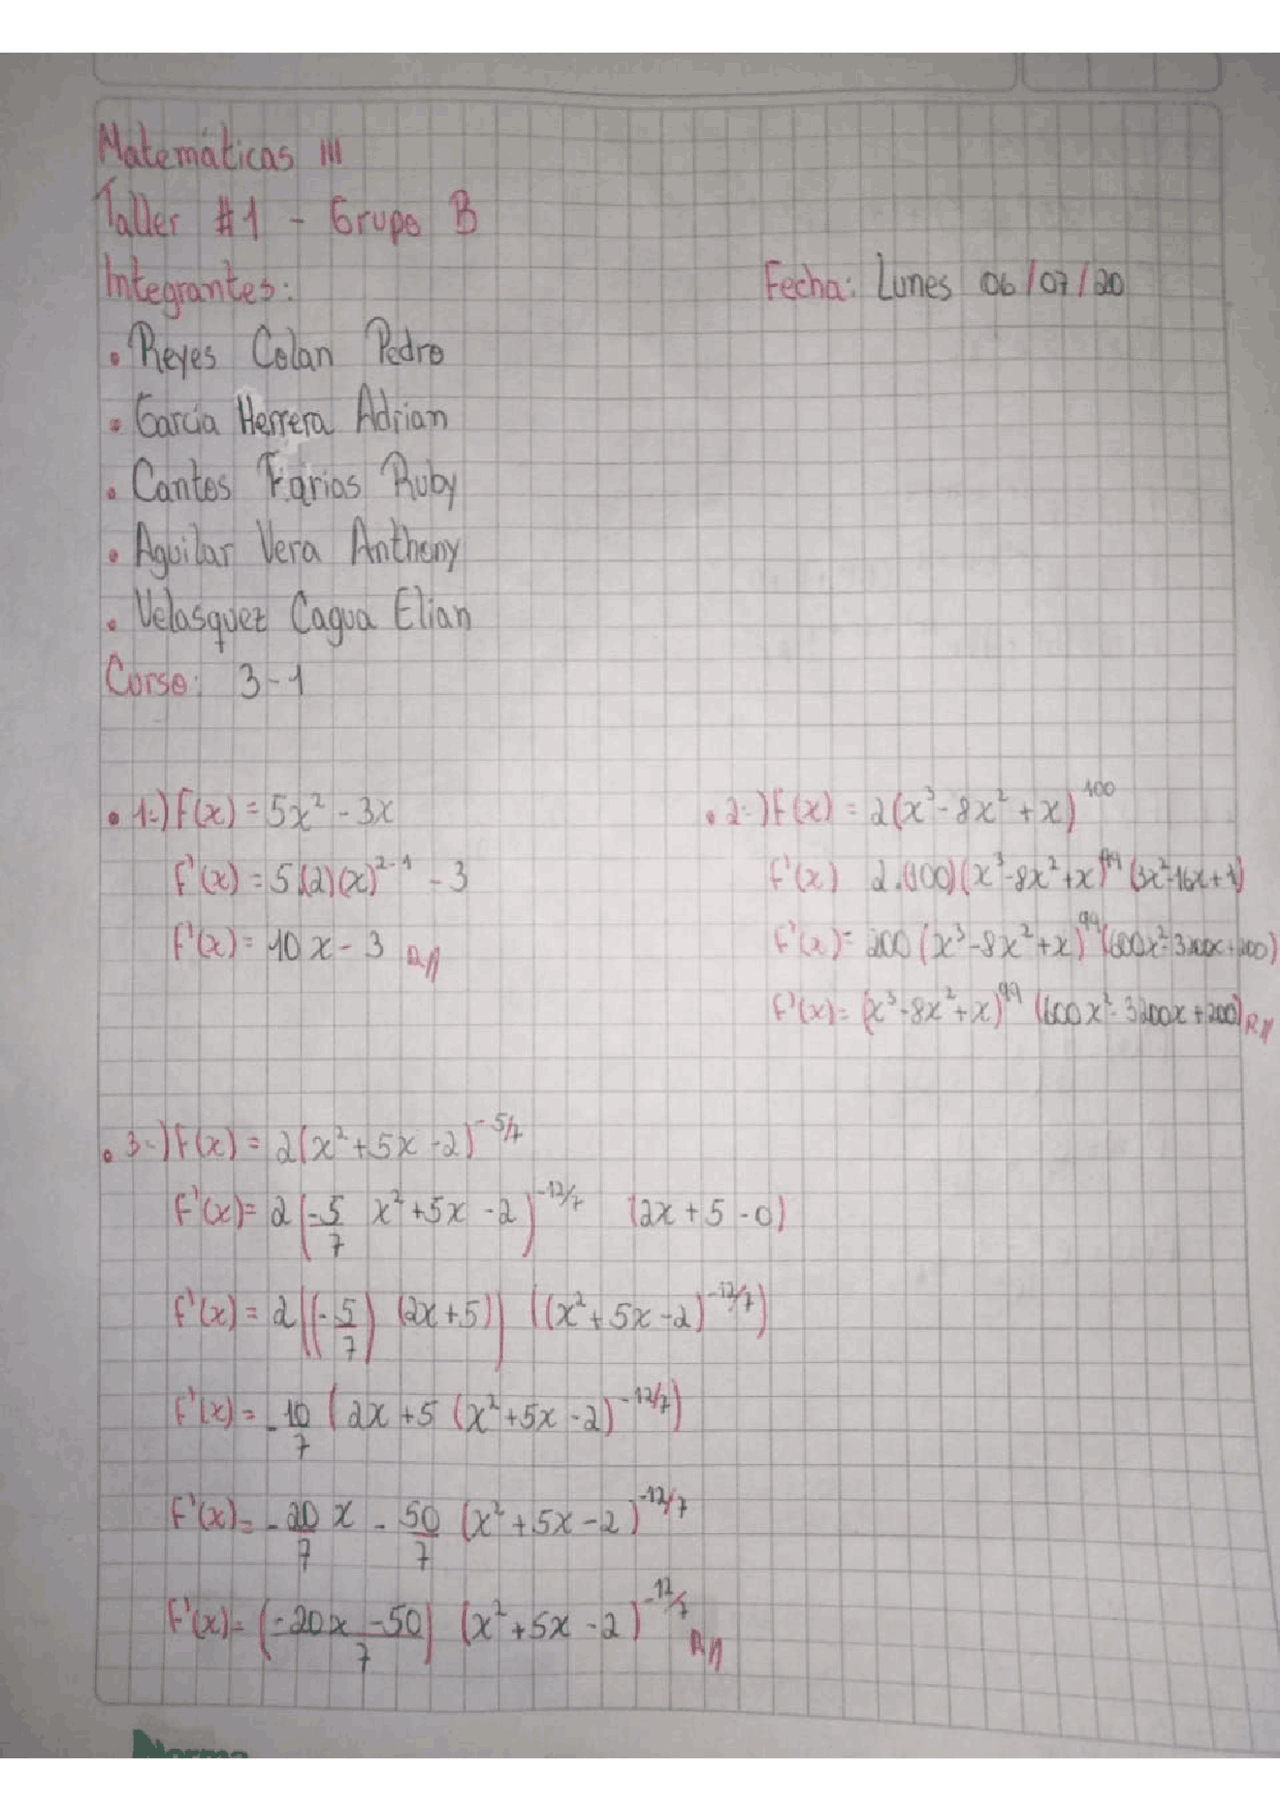 Matemáticas III
Taller #1 - Grupo B
Integrantes:
Fecha: Lunes 06/07/20
• Reyes Colan Pedro
• Garcia Herrera Adrian
• Cantos Farias Ruby
• Aguilar Vera Anthony
• Velasquez Cagua Elian
Curso: 3-1
• 1-) F(x) = 5x² - 3x
F'(x) = 5(2)(x)²⁻¹ - 3
F'(x) = 10x - 3 R//
• 2-) F(x) = 2(x³ - 8x² + x)¹⁰⁰
F'(x) 2.(100)(x³-8x²+x)⁹⁹ (3x²-16x+1)
F'(x) = 200 (x³-8x²+x)⁹⁹ (600x²-3200x+200)
F'(x) = (x³-8x²+x)⁹⁹ (600x²-3200x+200) R//
• 3-) F(x) = 2(x²+5x-2)^-5/7
F'(x) = 2(-5/7 x²+5x-2)^-12/7 (2x+5-0)
F'(x) = 2((-5/7) (2x+5)) ((x²+5x-2)^-12/7)
F'(x) = -10/7 (2x+5 (x²+5x-2)^-12/7)
F'(x) = -20/7 x - 50/7 (x²+5x-2)^-12/7
F'(x) = (-20x-50/7) (x²+5x-2)^-12/7 R//
Norma